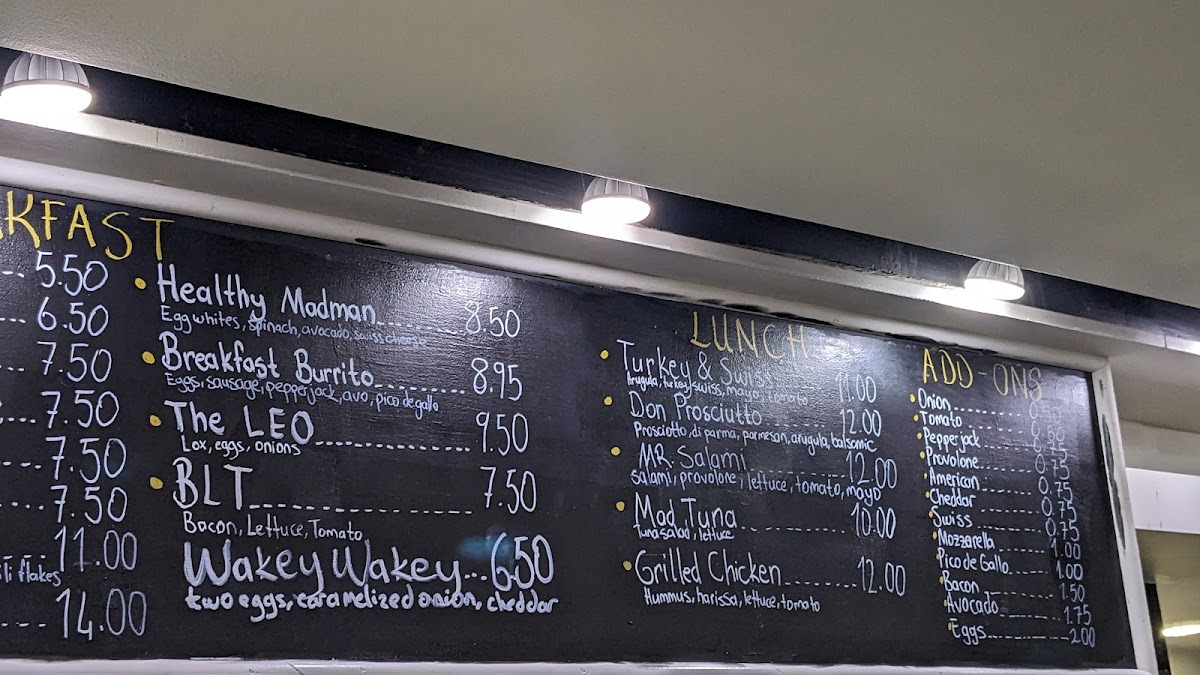 KFAST
5.50
6.50
7.50
7.50
7.50
7.50
11.00
ili flakes
14.00
Healthy Madman 8.50
Egg whites, spinach, avocado, swiss cheese
Breakfast Burrito 8.95
Eggs, sausage, pepperjack, avo, pico de gallo
The LEO 9.50
Lox, eggs, onions
BLT 7.50
Bacon, Lettuce, Tomato
Wakey Wakey... 6.50
two eggs, caramelized onion, cheddar
LUNCH
Turkey & Swiss 11.00
Arugula, turkey, swiss, mayo, tomato
Don Prosciutto 12.00
Prosciotto, di parma, parmesan, arugula, balsomic
MR. Salami 12.00
Salami, provolone, lettuce, tomato, mayo
Mad Tuna 10.00
Tuna salad, lettuce
Grilled Chicken 12.00
Hummus, harissa, lettuce, tomato
ADD-ONS
Onion 0.50
Tomato 0.50
Pepper jack 0.75
Provolone 0.75
American 0.75
Cheddar 0.75
Swiss 0.75
Mozzarella 1.00
Pico de Gallo 1.00
Bacon 1.50
Avocado 1.75
Eggs 2.00